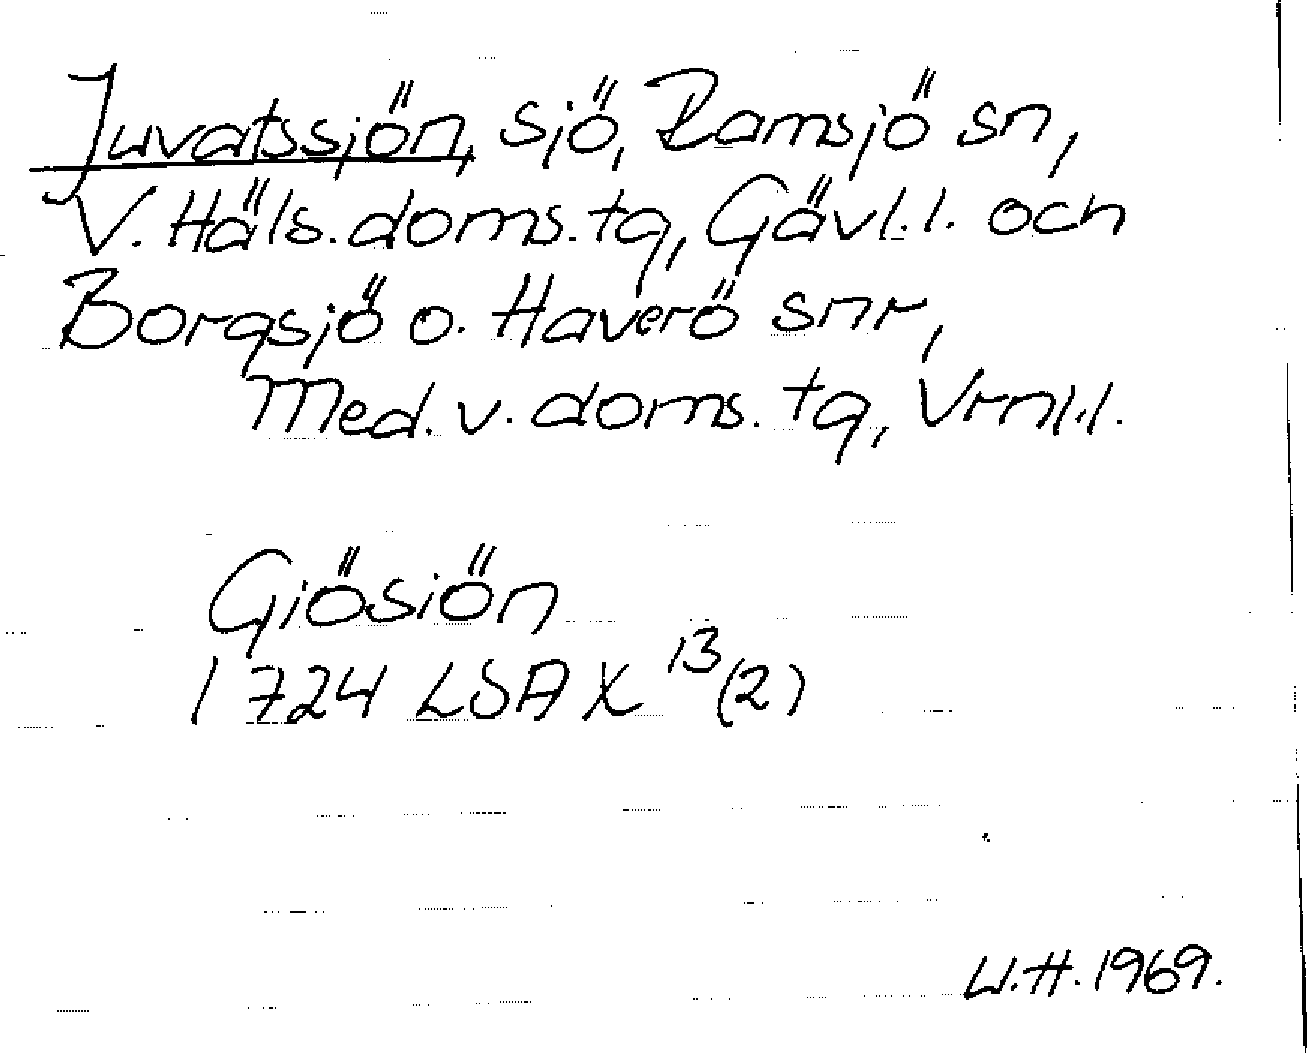 Juvatssjön, sjö, Ramsjö sn,
V. Häls. doms. tg, Gävl.l. och
Borgsjö o. Haverö snr,
Med. v. doms. tg, Vrnl.l.
Giösiön
1724 LSA X 13(2)
W.H. 1969.